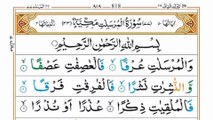 سُوْرَةُ الْمُرْسَلٰتِ مَكِّيَّةٌ
بِسْمِ اللّٰهِ الرَّحْمٰنِ الرَّحِيْمِ
وَالْمُرْسَلٰتِ عُرْفًا فَالْعٰصِفٰتِ عَصْفًا
وَّالنّٰشِرٰتِ نَشْرًا فَالْفٰرِقٰتِ فَرْقًا
فَالْمُلْقِيٰتِ ذِكْرًا عُذْرًا اَوْ نُذْرًا